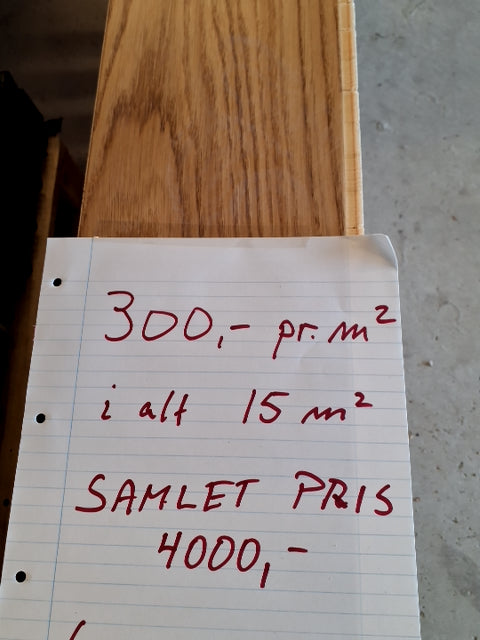 300,- pr. m²
i alt 15 m²
SAMLET PRIS
4000,-